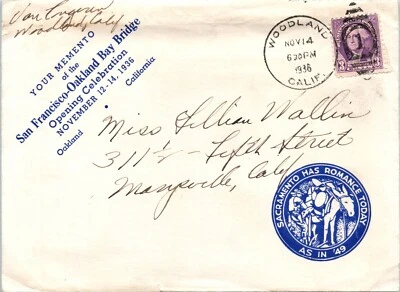 Van
Woodland, Calif
YOUR MEMENTO
of the
San Francisco-Oakland Bay Bridge
Opening Celebration
NOVEMBER 12-14, 1936
Oakland California
WOODLAND
NOV 14
6 30 PM
1936
CALIF.
3
Miss Lillian Wallin
311½ - Fifth Street
Marysville, Calif
SACRAMENTO HAS ROMANCE TODAY
AS IN '49